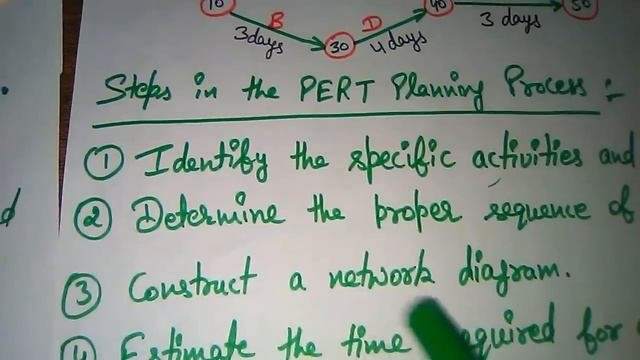 10 B D 40 50
3days 30 4 days 3 days
Steps in the PERT Planning Process :-
① Identify the specific activities and
② Determine the proper sequence of
③ Construct a network diagram.
④ Estimate the time required for